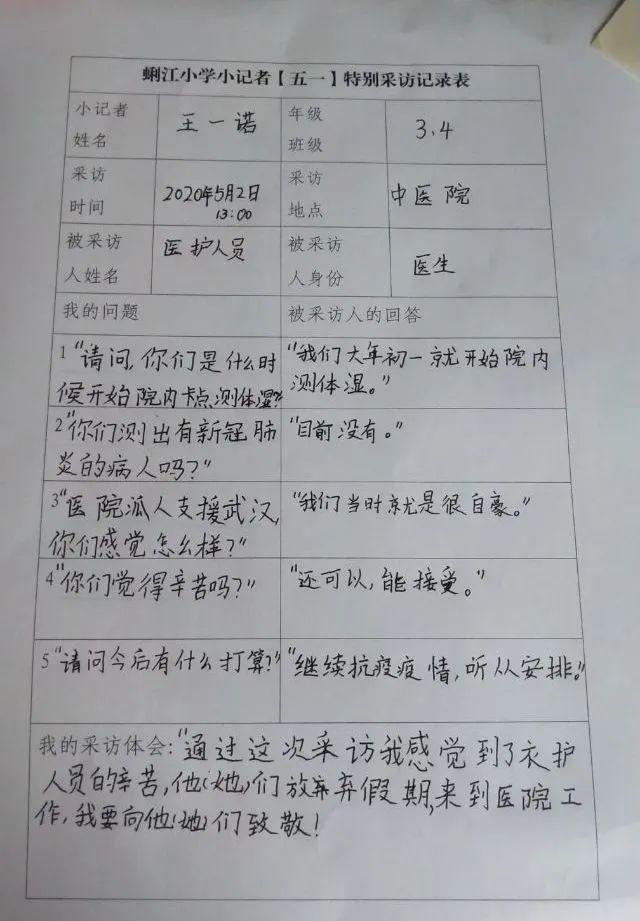 蜊江小学小记者【五一】特别采访记录表
小记者姓名 王一诺 年级班级 3.4
采访时间 2020年5月2日 13:00 采访地点 中医院
被采访人姓名 医护人员 被采访人身份 医生
我的问题 被采访人的回答
1 "请问,你们是什么时
候开始院内卡点测体湿?"
"我们大年初一就开始院内
测体湿。"
2 "你们测出有新冠肺
炎的病人吗?"
"目前没有。"
3 "医院派人支援武汉,
你们感觉怎么样?"
"我们当时就是很自豪。"
4 "你们觉得辛苦吗?"
"还可以,能接受。"
5 "请问今后有什么打算?"
"继续抗疫疫情,听从安排。"
我的采访体会:"通过这次采访我感觉到了衣护
人员的辛苦,他(她)们放弃弃假期,来到医院工
作,我要向他(她)们致敬!